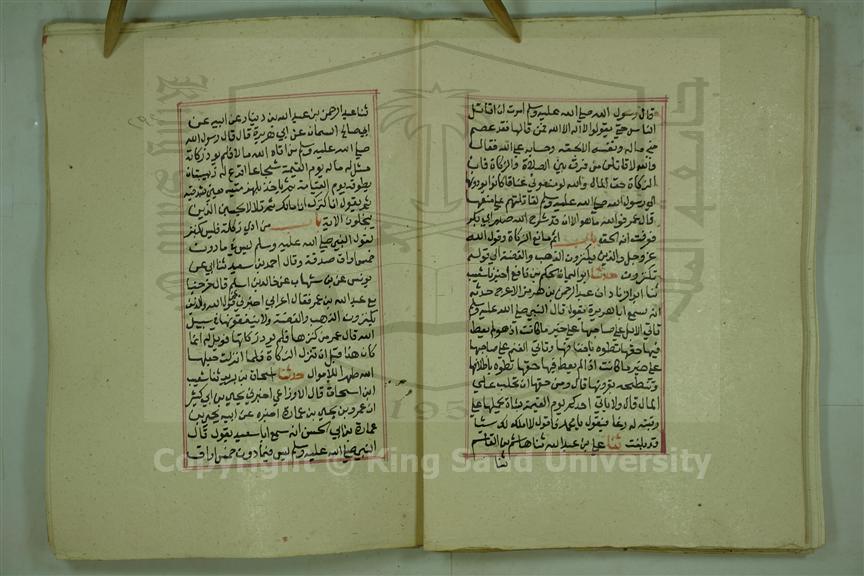 قال رسول الله صلى الله عليه وسلم امرت ان اقاتل
الناس حتى يقولوا لا اله الا الله فمن قالها فقد عصم
مني ماله ونفسه الا بحقه وحسابه على الله فقال
والله لاقاتلن من فرق بين الصلاة والزكاة فان
الزكاة حق المال والله لو منعوني عناقا كانوا يودونها
الى رسول الله صلى الله عليه وسلم لقاتلتهم على منعها
قال عمر فوالله ما هو الا ان قد شرح الله صدر ابي بكر
فعرفت انه الحق باب اثم مانع الزكاة وقول الله
عز وجل والذين يكنزون الذهب والفضة الى قوله
تكنزون حدثنا ابو اليمان الحكم بن نافع اخبرنا شعيب
ثنا ابو الزناد ان عبد الرحمن بن هرمز الاعرج حدثه
انه سمع ابا هريرة يقول قال النبي صلى الله عليه وسلم
تاتي الابل على صاحبها على خير ما كانت اذا هو لم يعط
فيها حقها تطؤه باخفافها وتاتي الغنم على صاحبها
على خير ما كانت اذا لم يعط فيها حقها تطؤه باظلافها
وتنطحه بقرونها قال ومن حقها ان تحلب على
المال قال ولا ياتي احدكم يوم القيمة بشاة يحملها على
رقبته له رغا فيقول يا محمد فاقول لا املك لك شيئا
قد بلغت ثنا علي بن عبد الله ثنا هاشم بن القاسم
ثنا
ثنا عبد الرحمن بن عبد الله بن دينار عن ابيه عن
ابي صالح السمان عن ابي هريرة قال قال رسول الله
صلى الله عليه وسلم من اتاه الله مالا فلم يود زكاته
مثل له ماله يوم القيمة شجاعا اقرع له زبيبتان
يطوقه يوم القيامة ثم ياخذ بلهزمتيه يعني شدقيه
ثم يقول انا كنزك انا مالك ثم تلا لا يحسبن الذين
يبخلون الاية باب من ادي زكاته فليس بكنز
لقول النبي صلى الله عليه وسلم ليس فيما دون
خمس اواق صدقة وقال احمد بن سعيد ثنا ابي عن
يونس عن بن شهاب عن خالد بن اسلم قال خرجنا
مع عبد الله بن عمر فقال اعرابي اخبرني قول الله والذين
يكنزون الذهب والفضة ولا ينفقونها في سبيل
الله قال عمر من كنزها فلم يود زكاتها فويل له انما
كان هذا قبل ان تنزل الزكاة فلما انزلت جعلها
الله طهرا للاموال حدثنا اسحاق بن يزيد ثنا شعيب
ابن اسحاق قال الاوزاعي اخبرني يحيى بن ابي كثير
ان عمرو بن يحيى بن عمارة اخبره عن ابيه يحيى بن
عمارة بن ابي الحسن انه سمع ابا سعيد يقول قال
النبي صلى الله عليه وسلم ليس فيما دون خمس اواق
جامعة الملك سعود
1957
Copyright © King Saud University